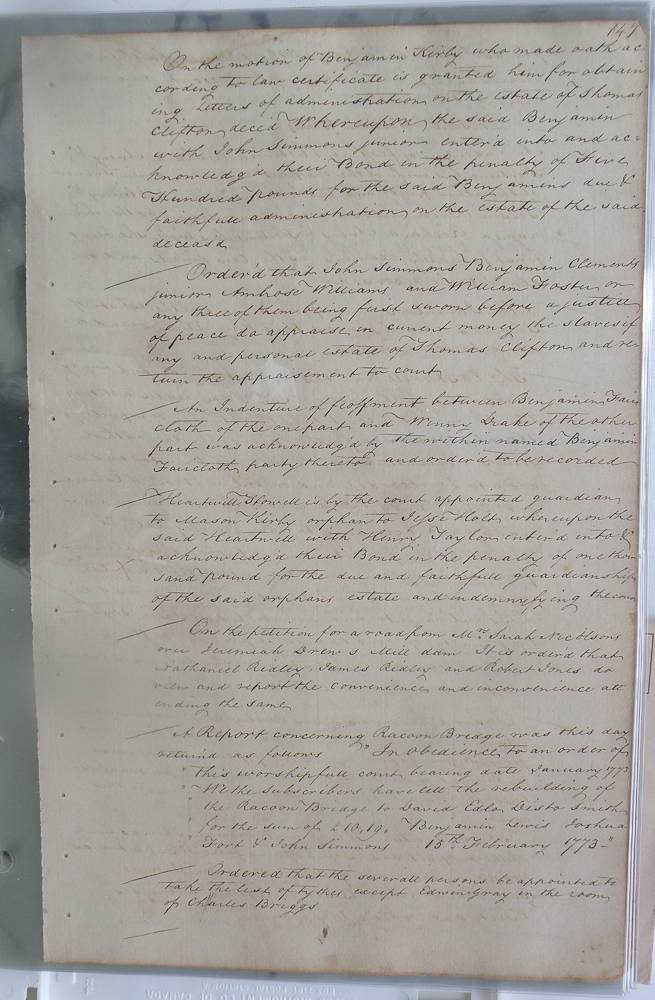 147
On the motion of Benjamin Kirby who made oath ac
cording to law certificate is granted him for obtain
ing Letters of administration on the estate of Thomas
Clifton deced Whereupon the said Benjamin
with John Simmons junior enter'd into and ac=
knowledg'd their Bond in the penalty of Five
Hundred pounds for the said Benjamins due &
faithfull administration on the estate of the said
deceasd
Order'd that John Simmons Benjamin Clements
junior Ambrose Williams and William Foster or
any three of them being first sworn before a justice
of peace do appraise in current money the slaves if
any and personal estate of Thomas Clifton and re
turn the appraisement to court
An Indenture of feoffment between Benjamin Fair
cloth of the one part and Winny Drake of the other
part was acknowledg'd by the within named Benjamin
Faircloth party thereto and order'd to be recorded
Heartwell Howell is by the court appointed guardian
to Mason Kirby orphan to Jesse Holt whereupon the
said Heartwell with Henry Taylor enter'd into &
acknowledg'd their Bond in the penalty of one thou
sand pound for the due and faithfull guardianship
of the said orphans estate and indemnifying the
On the petition for a road from Mrs Sarah Nicolsons
over Jeremiah Drew's Mill dam It is order'd that
Nathaniel Ridley James Ridley and Robert Jones do
view and report the convenience and inconvenience att
ending the same
A Report concerning Racoon Bredge was this day
return'd as follows "In Obedience to an order of
" this worshipfull court bearing date January 1773
" We the subscribers have lett the rebuilding of
" the Racoon Bridge to David Edlo Disto Smith
" for the sum of £10,19. Benjamin Lewis Joshua
" Fort & John Simmons 15th February 1773 "
Ordered that the severall persons be appointed to
take the list of tythes except Edwin Gray in the room
of Charles Briggs